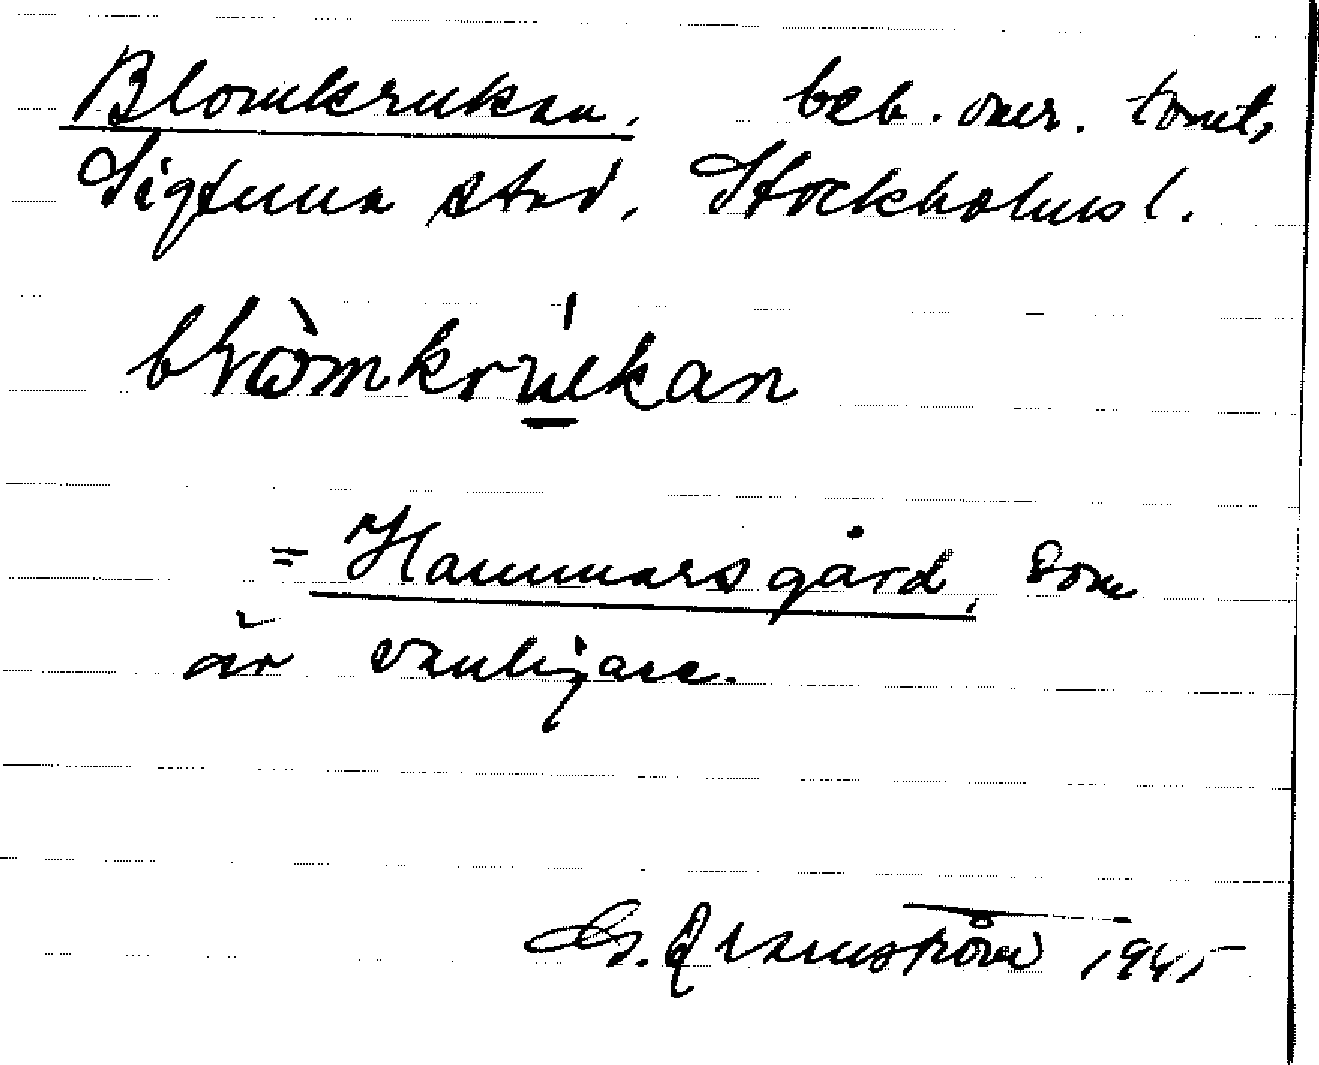 Blomkrukan, beb. omr. tomt,
Sigtuna stad, Stockholms l.
= Hammarsgård, som
är vanligare.
G. Qvarnström 1945